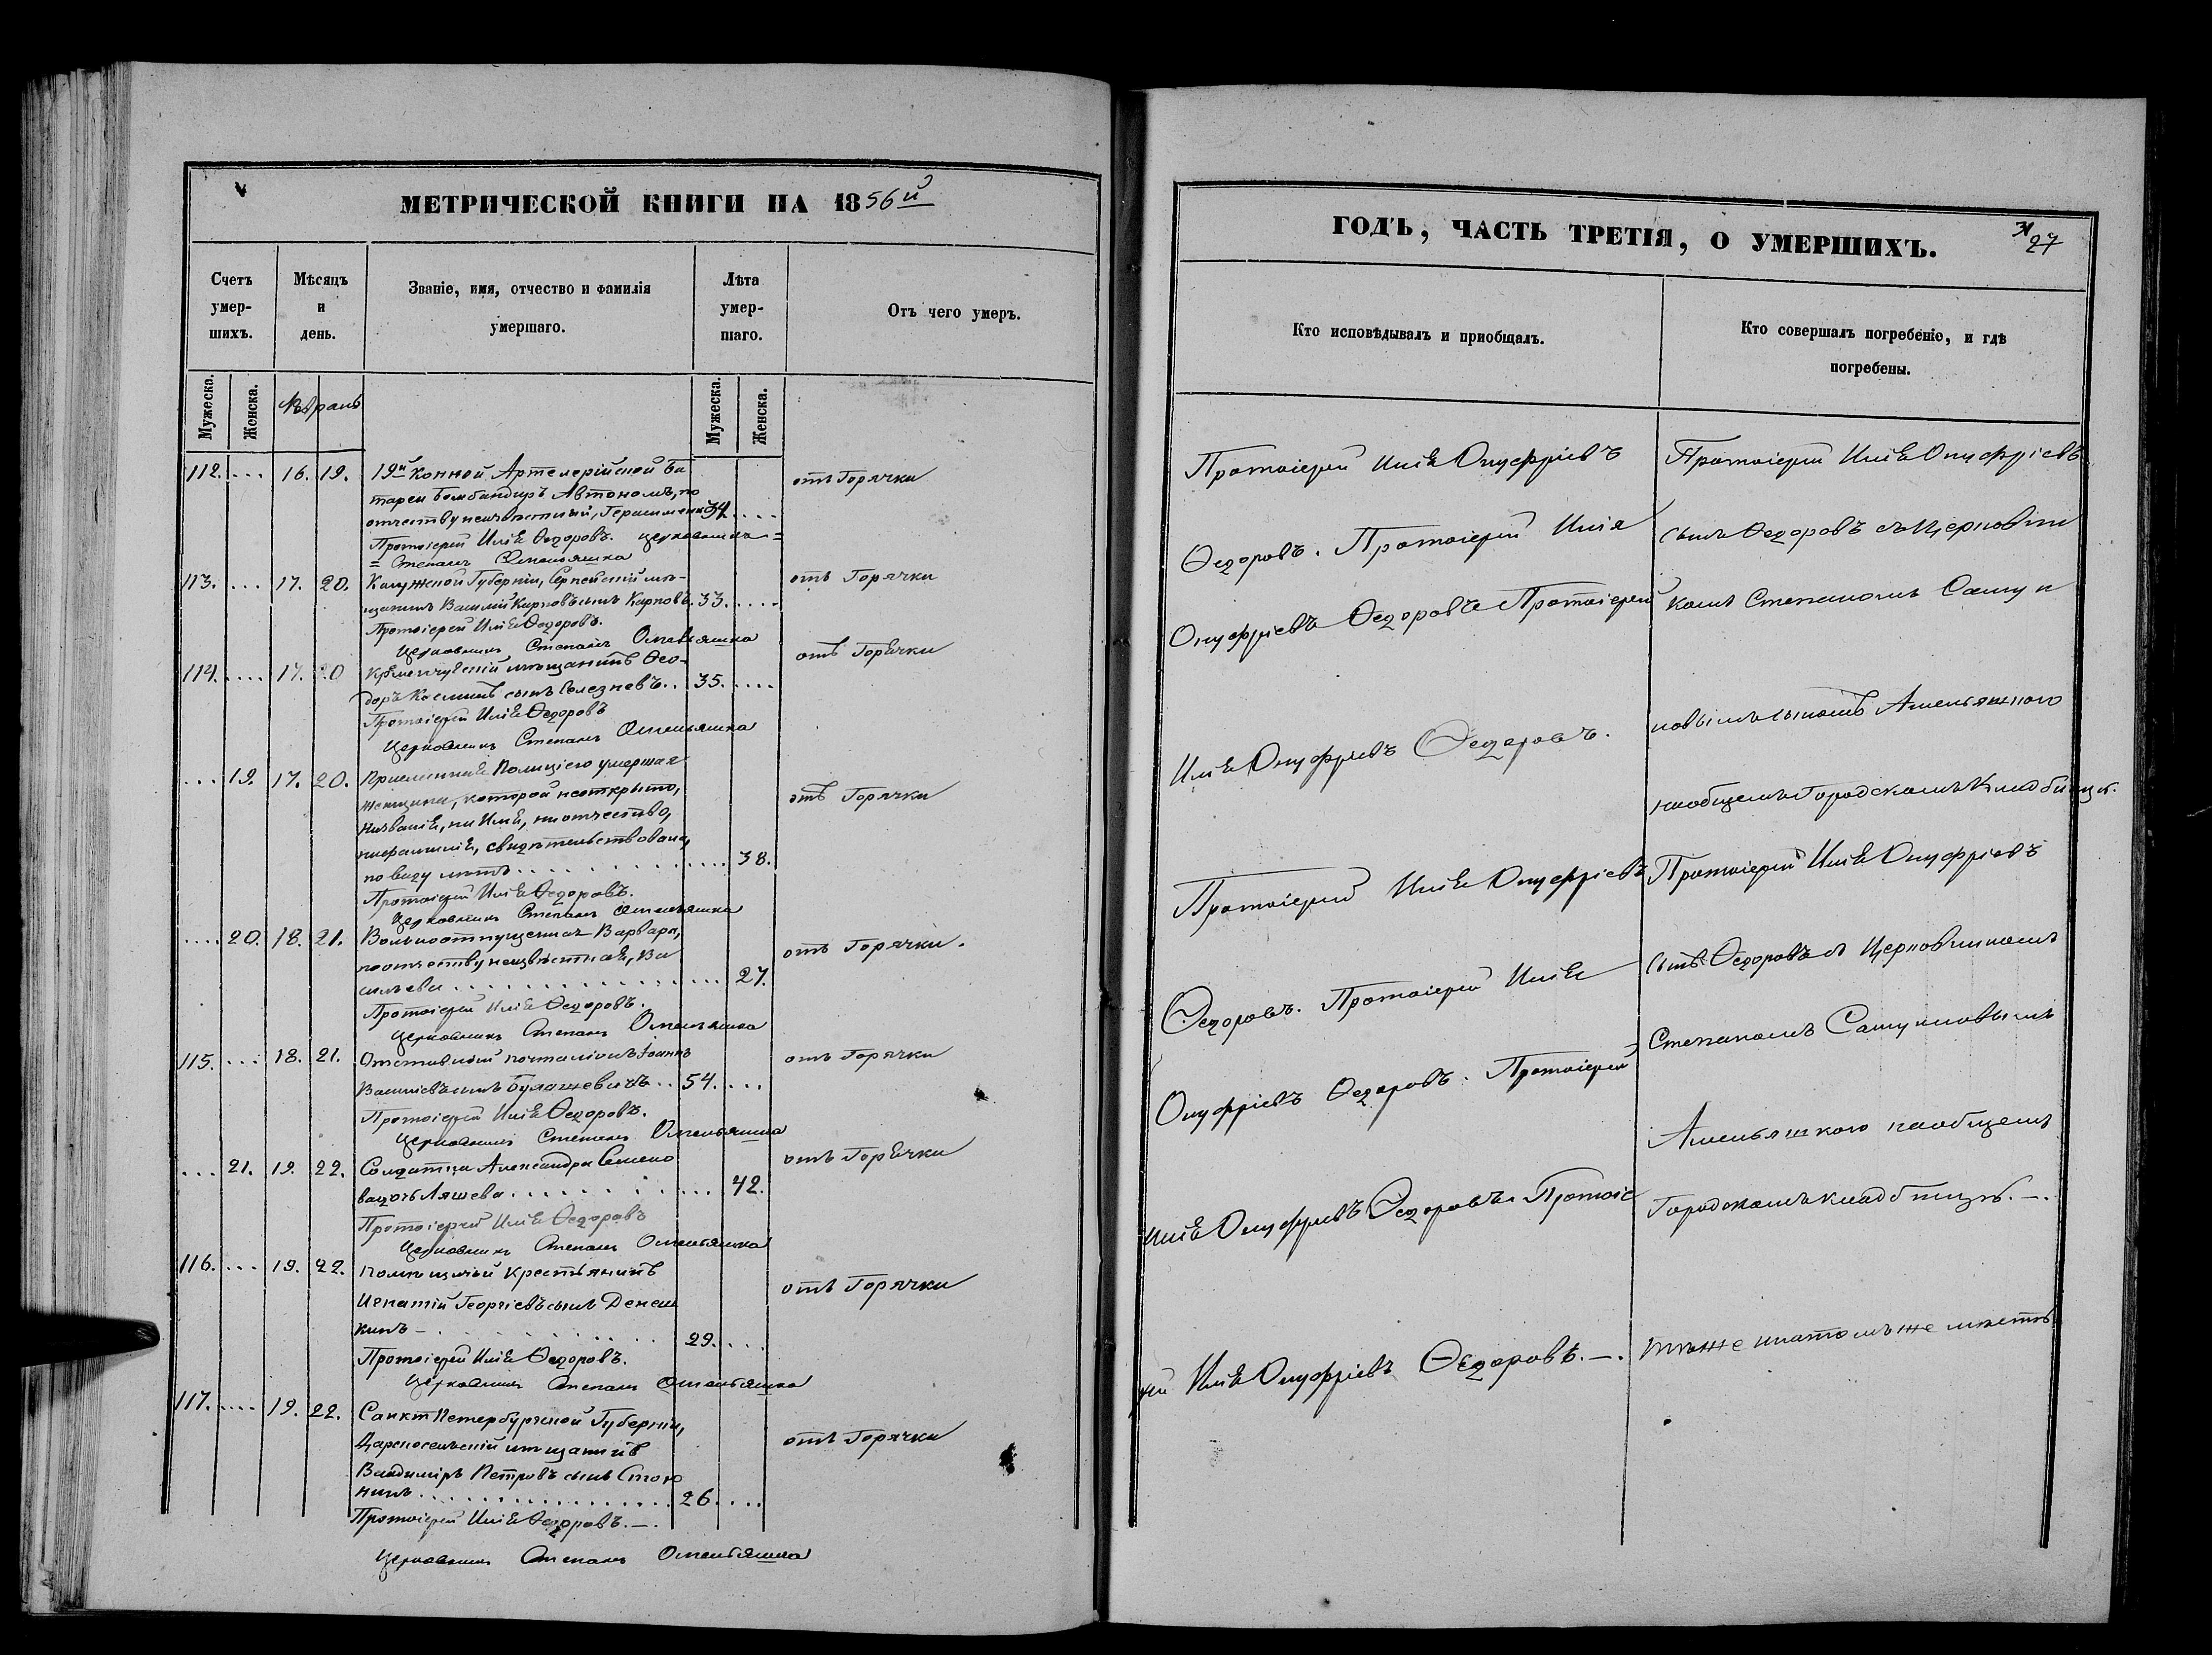 МЕТРИЧЕСКОЙ КНИГИ НА 1856й
Счетъ умер-шихъ.
Мѣсяцъ и день.
Званіе, имя, отчество и фамилія умершаго.
Лѣта умер-шаго.
Отъ чего умеръ.
Мужеска.
Женска.
Мужеска.
Женска.
112. ... 16. 19. 19й Конной Артелерійской Ба
тареи Бомбандиръ Автономъ, по
отчеству неизвѣстный, 34. ....
отъ Горячки
Протоіерей Илія Ѳедоровъ. Церковникъ =
= Степанъ Омельяшка
113. ... 17. 20. Калужской Губерніи, Серпейскій мѣ-
щанинъ Василій Карповъ сынъ Карповъ. 33. ....
отъ Горячки
Протоіерей Илія Ѳедоровъ.
Церковникъ Степанъ Омельяшка
114. .... 17. 20 Кременчугскій мѣщанинъ Ѳео-
доръ сынъ Селезневъ .. 35. ....
отъ Горячки
Протоіерей Илія Ѳедоровъ
Церковникъ Степанъ Омельяшка
... 19. 17. 20. Присланная Полиціею умершая
женщина, которой неоткрыто,
ни званія, ни Имя, ни отчество,
ни фамиліи, свидѣтельствована,
по виду лѣтъ ........ 38.
отъ Горячки
Протоіерей Илія Ѳедоровъ.
Церковникъ Степанъ Омельяшка
.... 20. 18. 21. Вольноотпущенная Варвара,
по отчеству неизвѣстная, Ва
сильева ........ 27.
отъ Горячки.
Протоіерей Илія Ѳедоровъ.
Церковникъ Степанъ Омельяшка
115. ... 18. 21. Отставной почталіонъ Іоаннъ
Василіевъ сынъ .. 54. ...
отъ Горячки
Протоіерей Илія Ѳедоровъ.
Церковникъ Степанъ Омельяшка
... 21. 19. 22. Солдатка Александра Семено
ва дочь Ляшева ........ 42.
отъ Горячки
Протоіерей Илія Ѳедоровъ
Церковникъ Степанъ Омельяшка
116. ... 19. 22. Помѣщичій Крестьянинъ
Игнатій Георгіевъ сынъ Денеш
кинъ ........ 29. ...
отъ Горячки
Протоіерей Илія Ѳедоровъ.
Церковникъ Степанъ Омельяшка
117. .... 19. 22. Санктпетербургской Губерніи,
Царскосельскій мѣщанинъ
Владиміръ Петровъ сынъ Стою
нинъ ........ 26. ....
отъ Горячки
Протоіерей Илія Ѳедоровъ. —.
Церковникъ Степанъ Омельяшка
ГОДЪ, ЧАСТЬ ТРЕТІЯ, О УМЕРШИХЪ.
27
Кто исповѣдывалъ и приобщалъ.
Кто совершалъ погребеніе, и гдѣ погребены.
Протоіерей Илія Онуфріевъ
Ѳедоровъ. Протоіерей Илія
Онуфріевъ Ѳедоровъ Протоіерей
Илія Онуфріевъ Ѳедоровъ.
Протоіерей Илія Онуфріевъ
Ѳедоровъ. Протоіерей Илія
Онуфріевъ Ѳедоровъ. Протоіерей
Илія Онуфріевъ Ѳедоровъ. Протоіе
рей Илія Онуфріевъ Ѳедоровъ. —.
Протоіерей Илія Онуфріевъ
сынъ Ѳедоровъ съ Церковни
комъ Степаномъ Самуи
ловымъ сыномъ Амельяшкою
на общемъ Городскомъ Кладбищѣ.
Протоіерей Илія Онуфріевъ
сынъ Ѳедоровъ съ Церковникомъ
Степаномъ Самуиловымъ
Амельяшкою на общемъ
Городскомъ кладбищѣ. —.
Тѣ же и на томъ же мѣстѣ